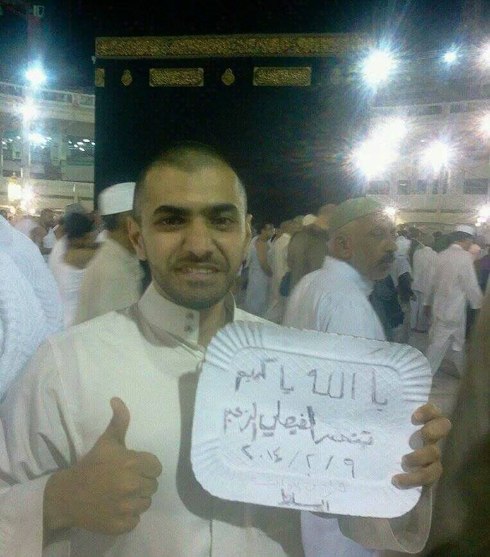 يا الله يا كريم
تنصر الفيصلي الزعيم
٢٠١٤/٢/٩
السلط